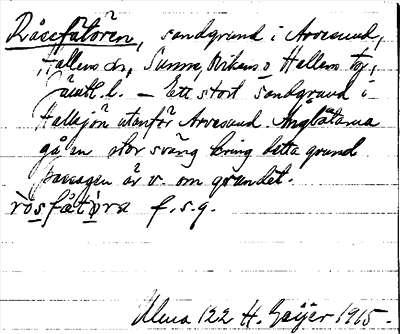 Råssfåtören, sandgrund i Arvesund,
Hallens sn, Sunne, Ovikens o Hallens tg,
Jämtl. l. — Ett stort sandgrund i
Hallsjön utanför Arvesund. Ångbåtarna
gå en stor sväng kring detta grund
passagen är v. om grundet.
f. s. g.
Alma 122 H. Geijer 1915.